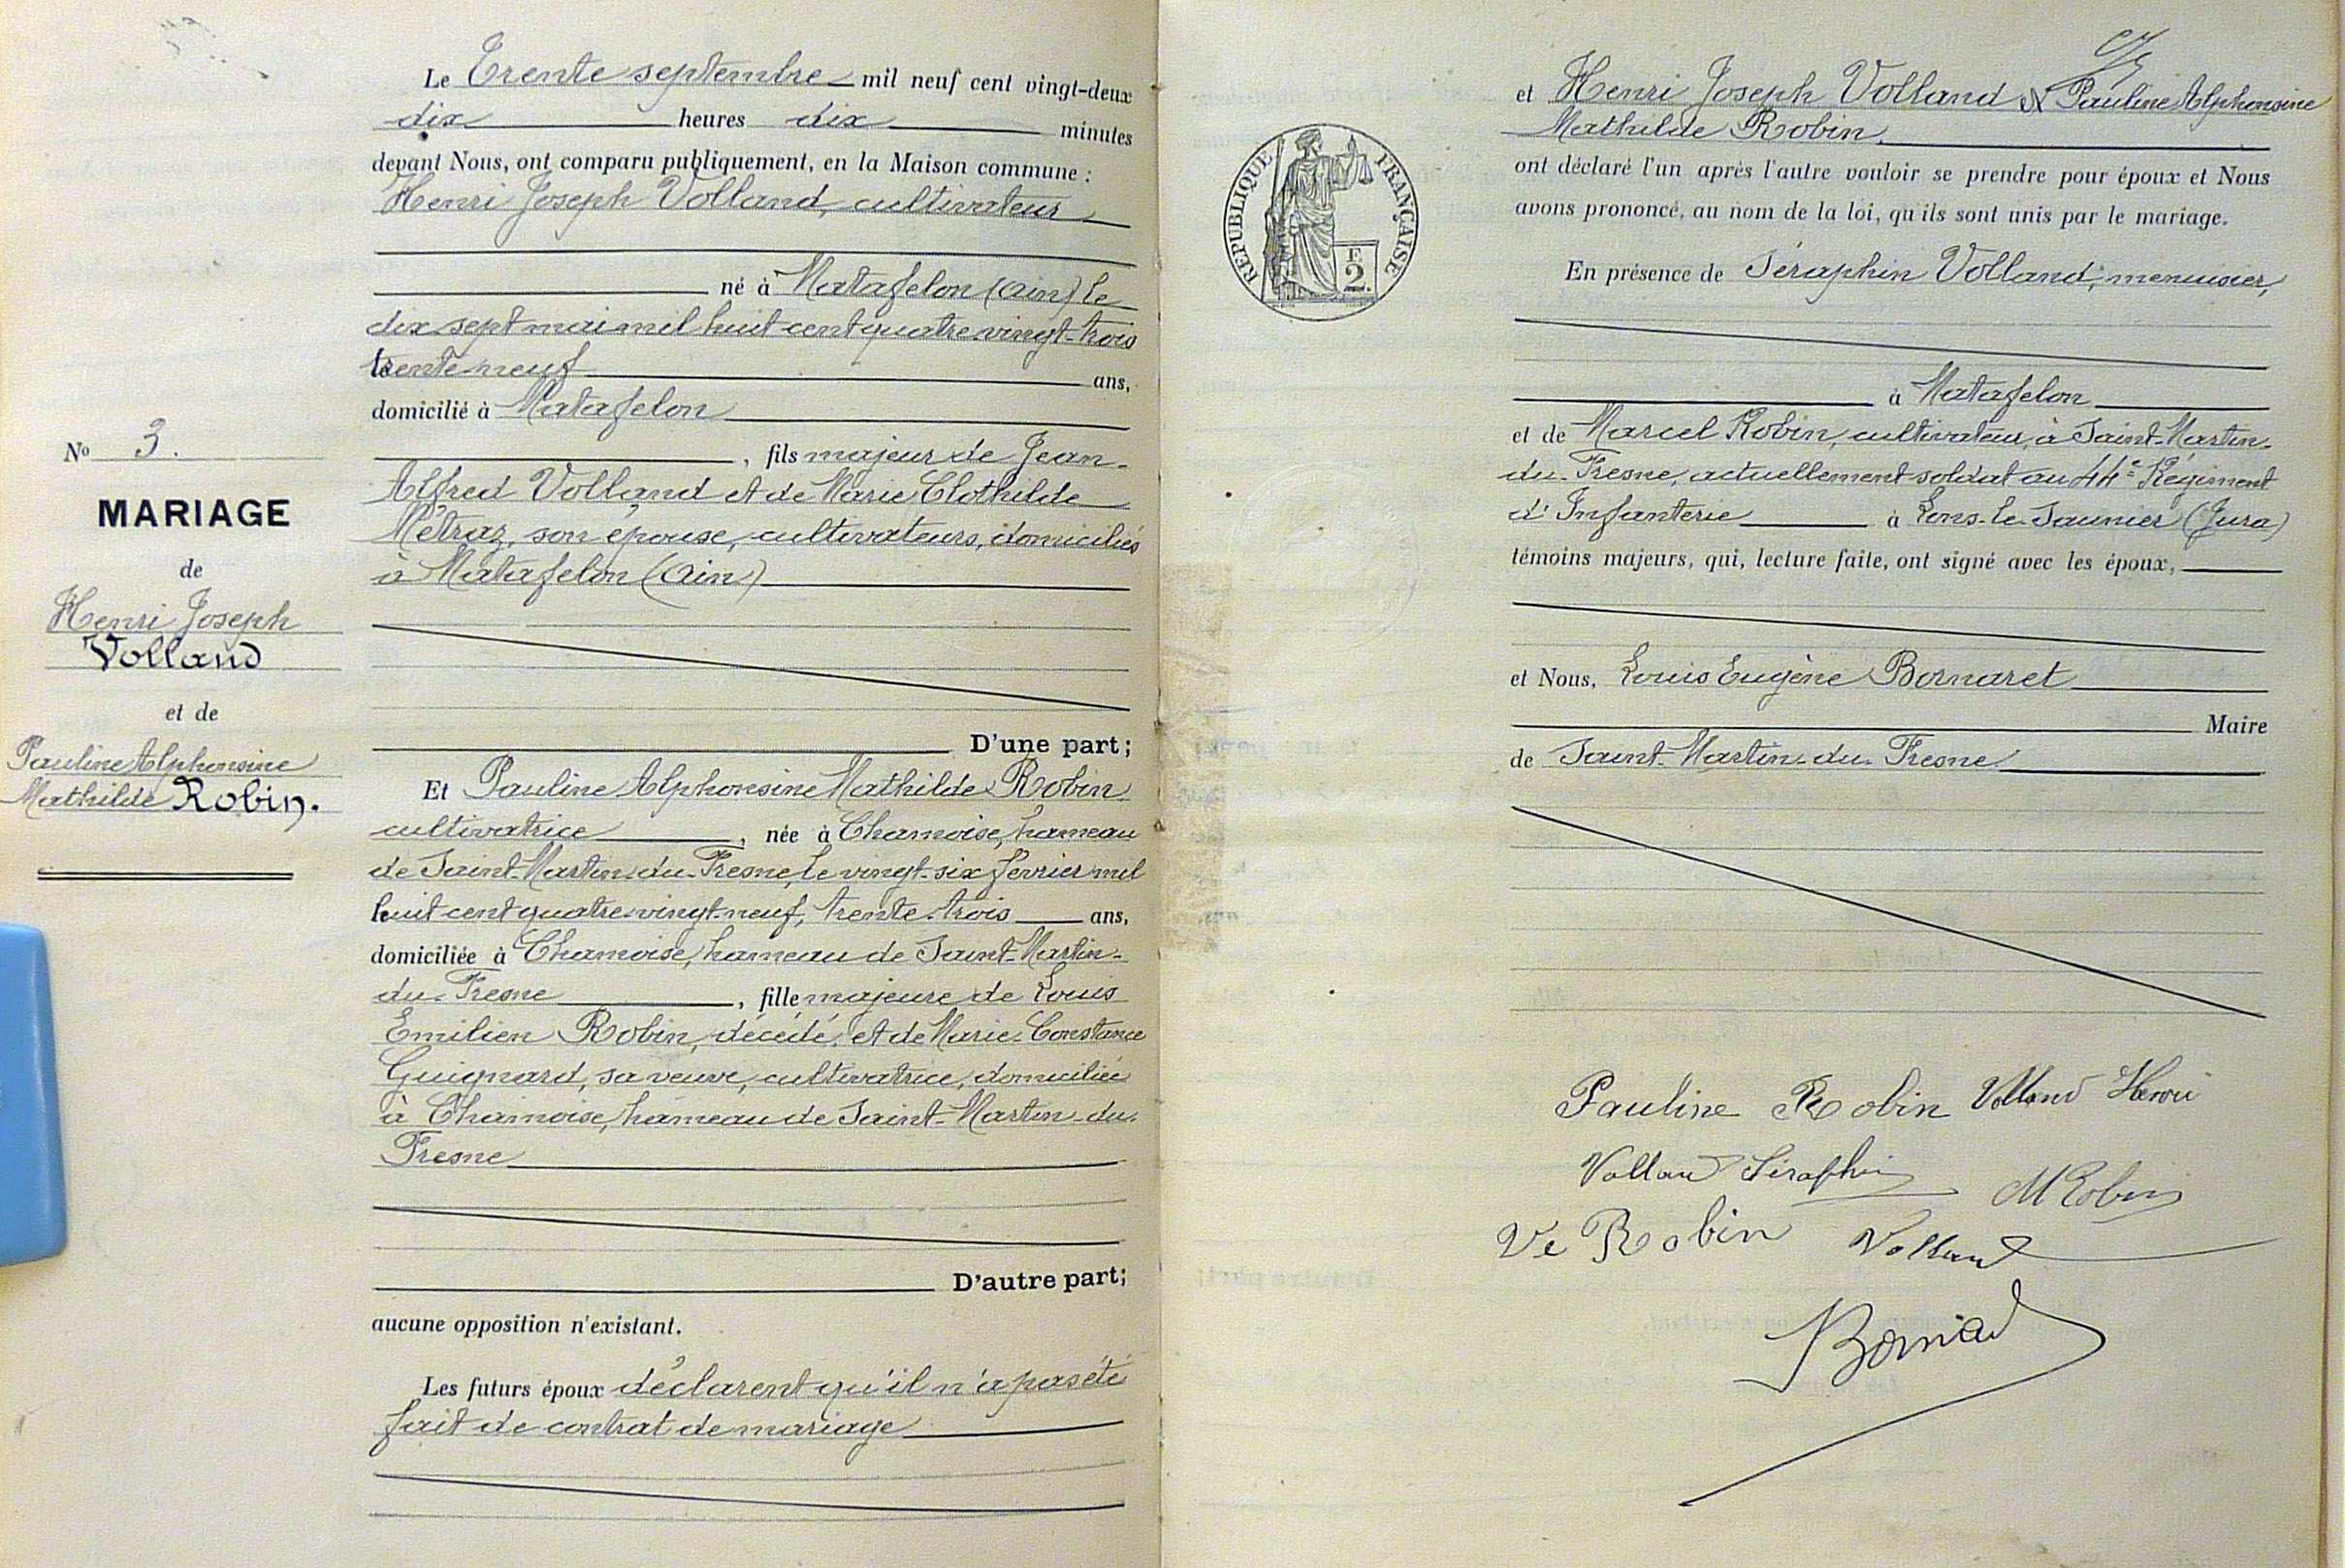 No 3.
MARIAGE
de
Henri Joseph
Volland
et de
Pauline Alphonsine
Mathilde Robin.
Le Trente septembre mil neuf cent vingt-deux
dix heures dix minutes
devant Nous, ont comparu publiquement, en la Maison commune :
Henri Joseph Volland, cultivateur
né à Matafelon (Ain) le
dix sept mai mil huit cent quatre vingt-trois
trente neuf ans,
domicilié à Matafelon
, fils majeur de Jean-
Alfred Volland et de Marie Clothilde
Métraz, son épouse, cultivateurs, domiciliés
à Matafelon (Ain)
D'une part;
Et Pauline Alphonsine Mathilde Robin
cultivatrice , née à Chamoise, hameau
de Saint-Martin-du-Fresne, le vingt-six février mil
huit cent quatre-vingt-neuf, trente-trois ans,
domiciliée à Chamoise, hameau de Saint-Martin-
du-Fresne , fille majeure de Louis
Emilien Robin, décédé, et de Marie-Constance
Guignard, sa veuve, cultivatrice, domiciliée
à Chamoise, hameau de Saint-Martin-du-
Fresne
D'autre part;
aucune opposition n'existant.
Les futurs époux déclarent qu'il n'a pas été
fait de contrat de mariage
et Henri Joseph Volland et Pauline Alphonsine
Mathilde Robin
ont déclaré l'un après l'autre vouloir se prendre pour époux et Nous
avons prononcé, au nom de la loi, qu'ils sont unis par le mariage.
RÉPUBLIQUE FRANÇAISE
F
2
En présence de Séraphin Volland, menuisier,
à Matafelon
et de Marcel Robin, cultivateur, à Saint-Martin-
du-Fresne, actuellement soldat au 44e Régiment
d'Infanterie à Lons-le-Saunier (Jura)
témoins majeurs, qui, lecture faite, ont signé avec les époux,
et Nous, Louis Eugène Bornaret
Maire
de Saint-Martin-du-Fresne
Pauline Robin Volland Henri
Volland Séraphin M Robin
Ve Robin Volland